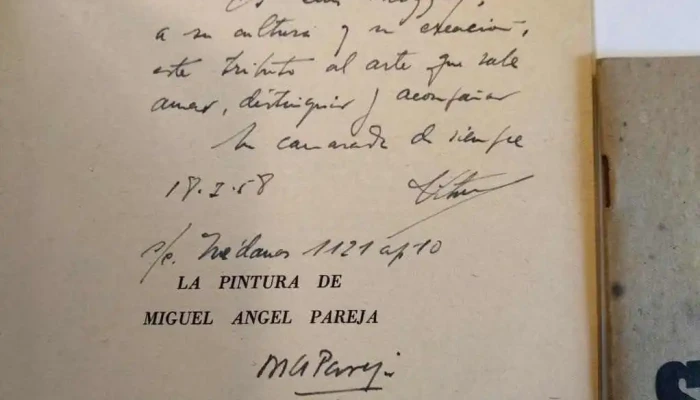 a su cultura y su creación,
este tributo al arte que sabe
amar, distinguir y acompañar
su camarada de siempre
18.2.58
s/c. Médanos 1121 ap 10
LA PINTURA DE
MIGUEL ANGEL PAREJA
MAPareja